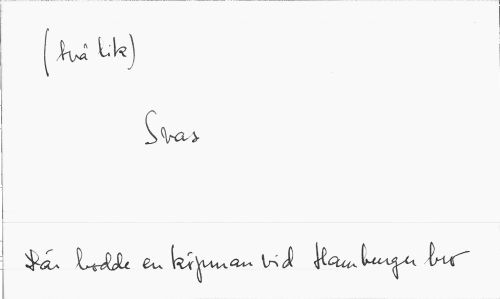 (två lik)
Svar
Där bodde en köpman vid Hamburger bro